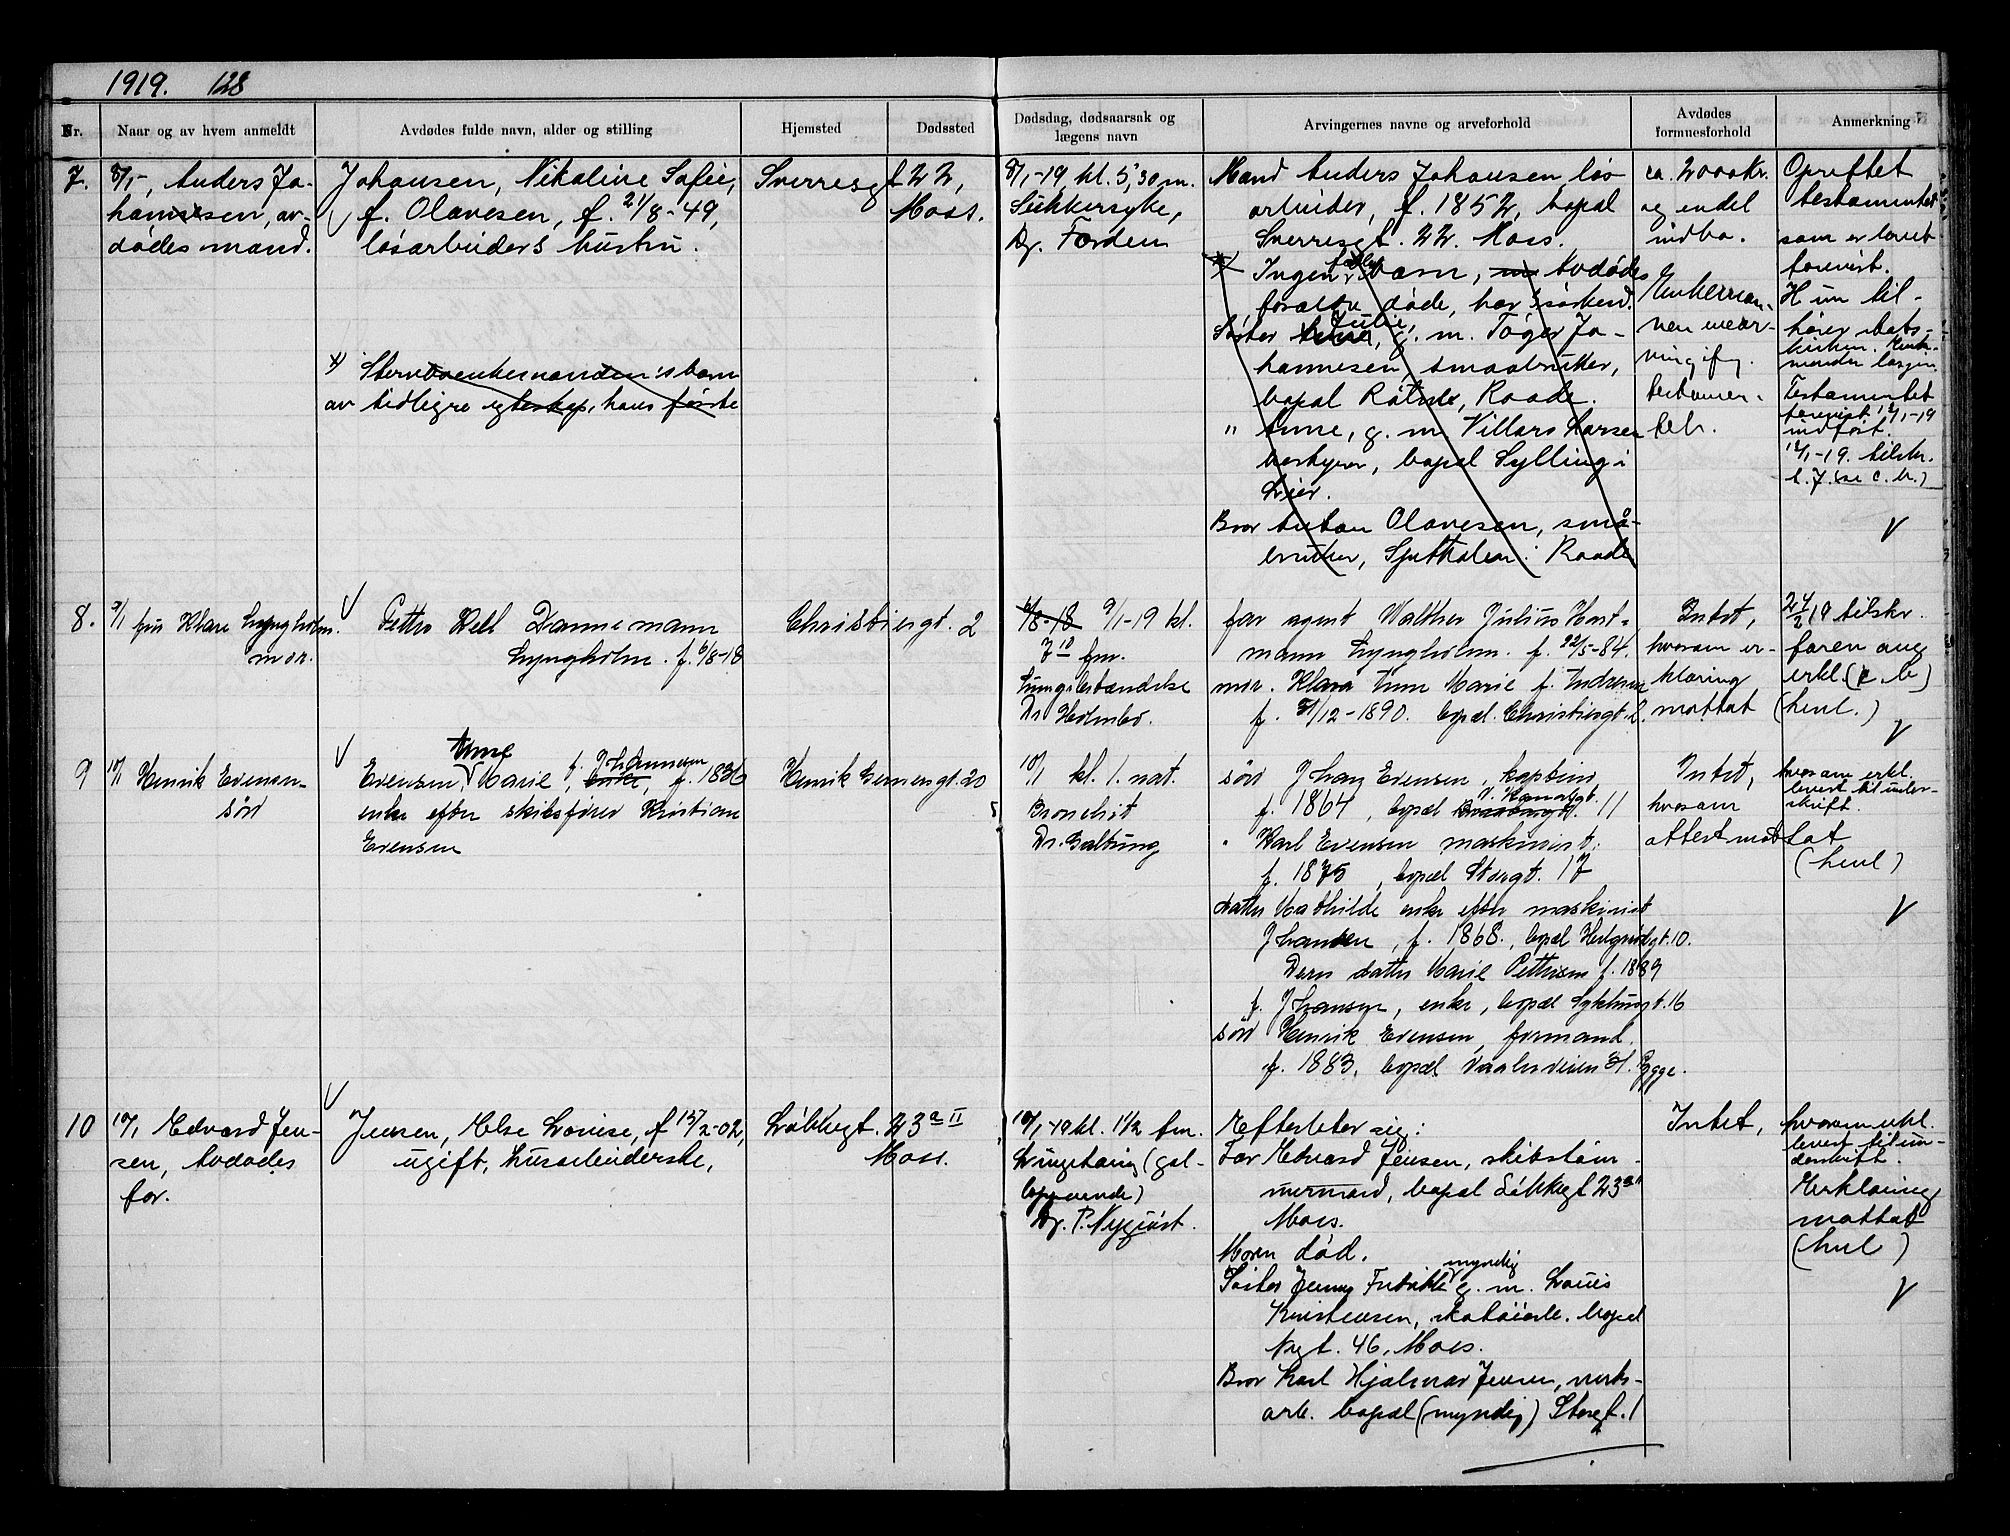 1919. 128
Nr.
Naar og av hvem anmeldt
Avdødes fulde navn, alder og stilling
Hjemsted
Dødssted
Dødsdag, dødsaarsak og
lægens navn
Arvingernes navne og arveforhold
Avdødes
formuesforhold
Anmerkning
7.
8/1-, Anders Jo-
hannesen, av-
dødes mand.
Johansen, Nikoline Sofie,
f. Olavesen, f. 21/8-49,
løsarbeiders hustru.
x) Stervboenkemandens barn
av tidligre egteskap, hans første
Sverresgt 22,
Moss.
8/1-19 kl. 5,30 m.
Sukkersyke,
Dr. Forden
Mand Anders Johansen, løs
arbeider, f. 1852, bopæl
Sverresgt. 22. Moss.
Ingen barn, Avdødes
forældre døde, har søskend.
Søster Julie, g. m. Tøger Jo-
hannesen, smaabruker,
bopæl Raade.
" Anne, g. m. Villars Larsen
bestyrer, bopæl Sylling i
Lier.
Bror Anton Olavesen, små-
bruker, i Raade
ca. 2000 kr.
og endel
indbo.
Enkeman-
nen enear-
ving ifg.
testamen-
tet.
Oprettet
testamentet
som er lovet
forevist.
Hun til-
hører stats-
kirken.
Testamentet
forevist 12/1-19
indført.
12/1-19. tilskr.
8.
9/1 fru Klara Lyngholm.
mor.
Petter Kell Dannemann
Lyngholm. f. 6/8-18
Christiesgt. 2
6/8-18 9/1-19 kl.
7 10 fm.
Lungebetændelse
Dr. Holmbo.
far agent Walther Julius Hart-
mann Lyngholm. f. 22/5-84.
mor. Klara Anne Marie f. Andresen
f. 31/12-1890. bopæl. Christiesgt. 2.
Intet,
hvorom er-
klæring
mottat
24/2 19 tilskr.
faren ang
erkl. (c. b)
(henl.)
9
10/1 Henrik Evensen-
søn
Evensen Anne Marie, f. Johannesen enke, f. 1836
enke efter skibsfører Kristian
Evensen
Henrik Gernersgt. 20
10/1 kl. 1. nat.
Bronchit
Dr. Galtung
søn Johan Evensen, kaptein
f. 1864, bopæl v. Kanalgt. 11
" Karl Evensen maskinist.
f. 1875, bopæl Storgt. 17
datter Mathilde enke efter maskinist
Johansen, f. 1868., bopæl Helgerødgt. 10.
Dens datter Marie Pettersen f. 1889
f. Johansen, enke, bopæl Sykehusgt. 16
søn Henrik Evensen, formand.
f. 1883, bopæl Vaalerveien 31. Rygge.
Intet,
hvorom
attest mottat
hvorom erkl.
levert til under-
skrift.
(henl)
10
10/1 Edvard Jen-
sen, Avdødes
far.
Jensen, Else Lovise, f 15/2-02,
ugift, husarbeiderske,
Løkkegt. 23 a II
Moss.
10/1-19 kl. 1 1/2 fm.
Lungetæring (gal-
loperende)
Dr. P. Nyquist.
Efterlater sig:
Far Edvard Jensen, skibstøm-
mermand, bopæl Løkkegt 23 a II
Moss.
Moren død.
Søster Jenny Fredrikke myndig g. m. Louis
Kristensen, skotøiarb. bopæl
Nygt. 46, Moss.
Bror Karl Hjalmar Jensen, verks-
arb. bopæl (myndig) Storgt. 1
Intet,
hvorom erkl.
levert til un-
derskrift.
Erklæring
mottat
(henl)